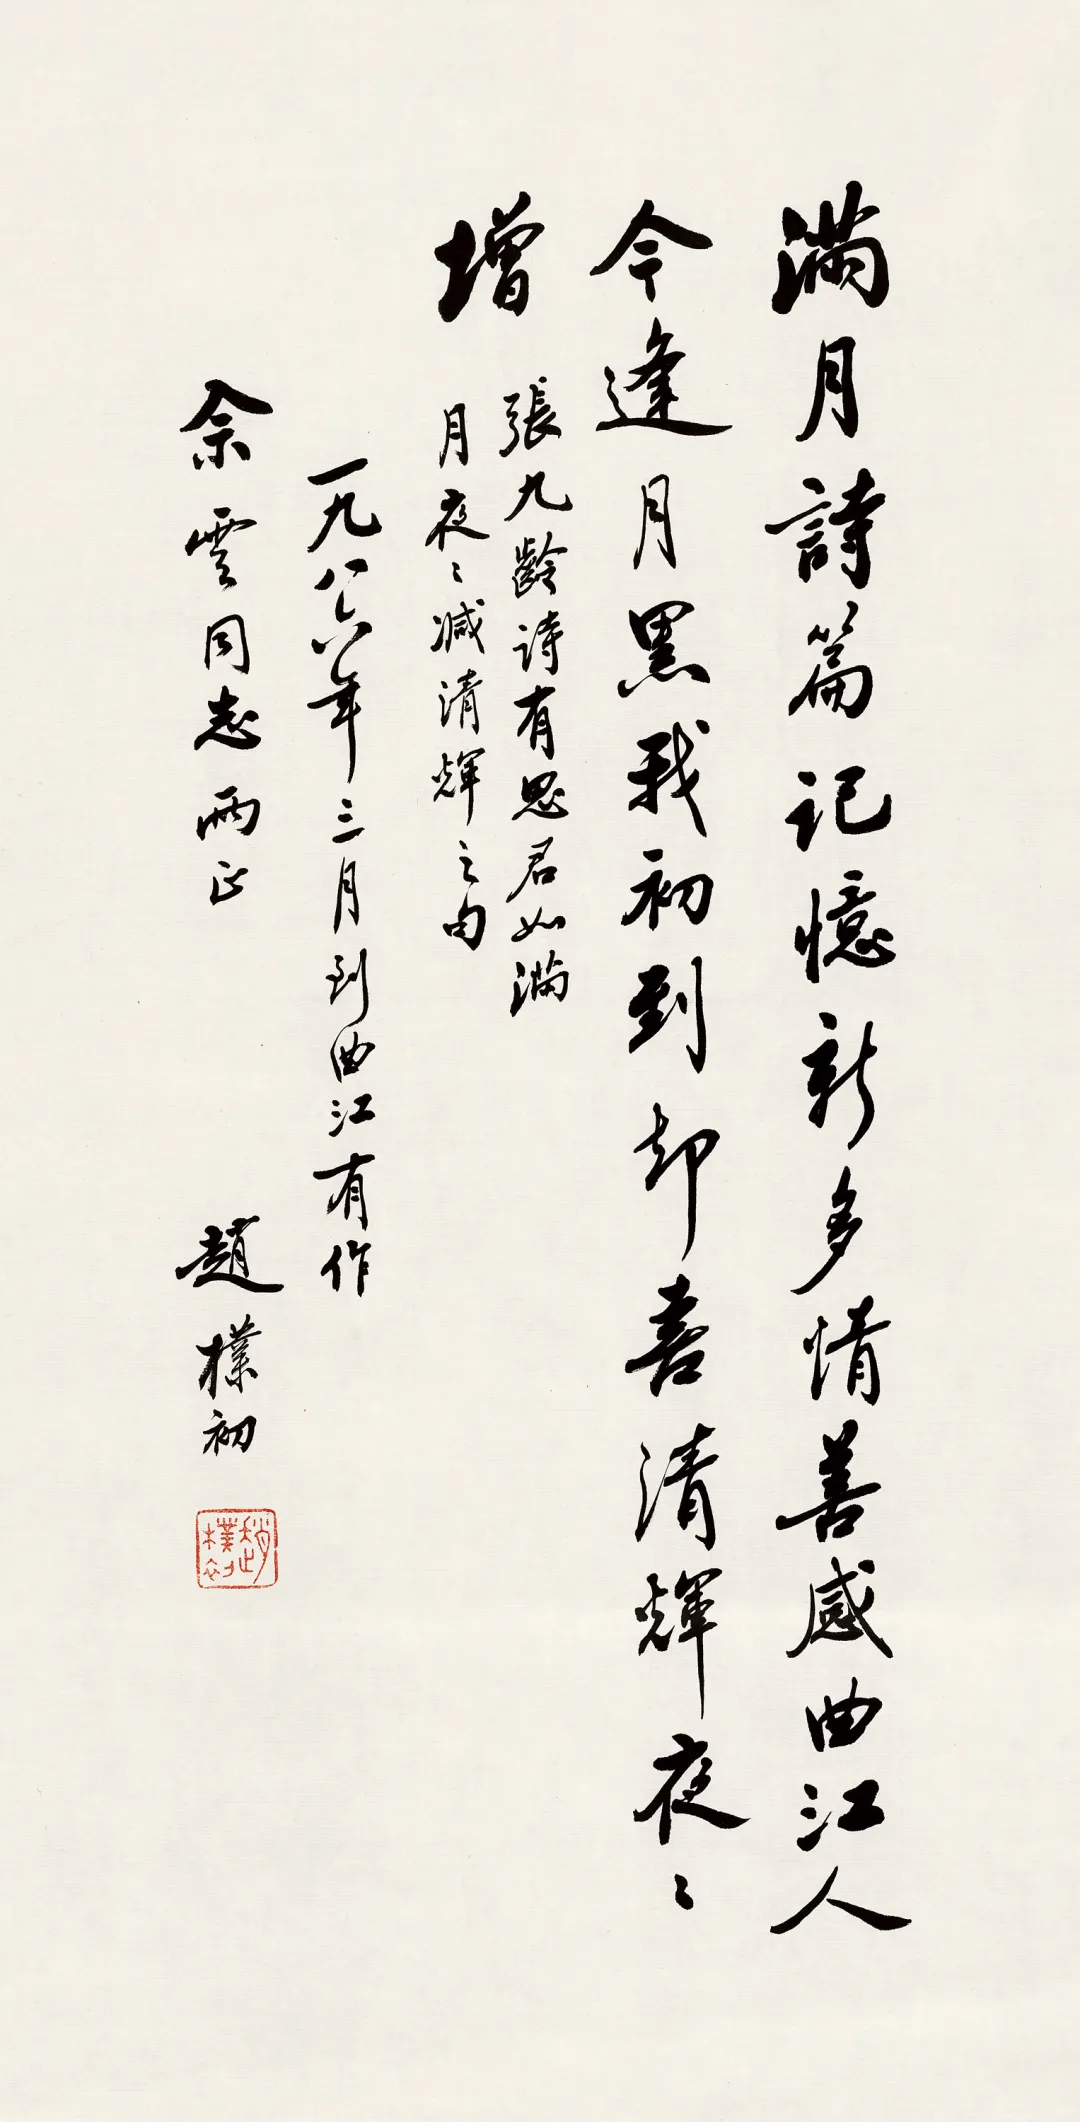 滿月詩篇記憶新多情善感曲江人
今逢月黑我初到却喜清輝夜〻
增
張九齡诗有思君如滿
月夜〻减清輝之句
一九八六年三月到曲江有作
佘雲同志两正
趙樸初
趙樸初